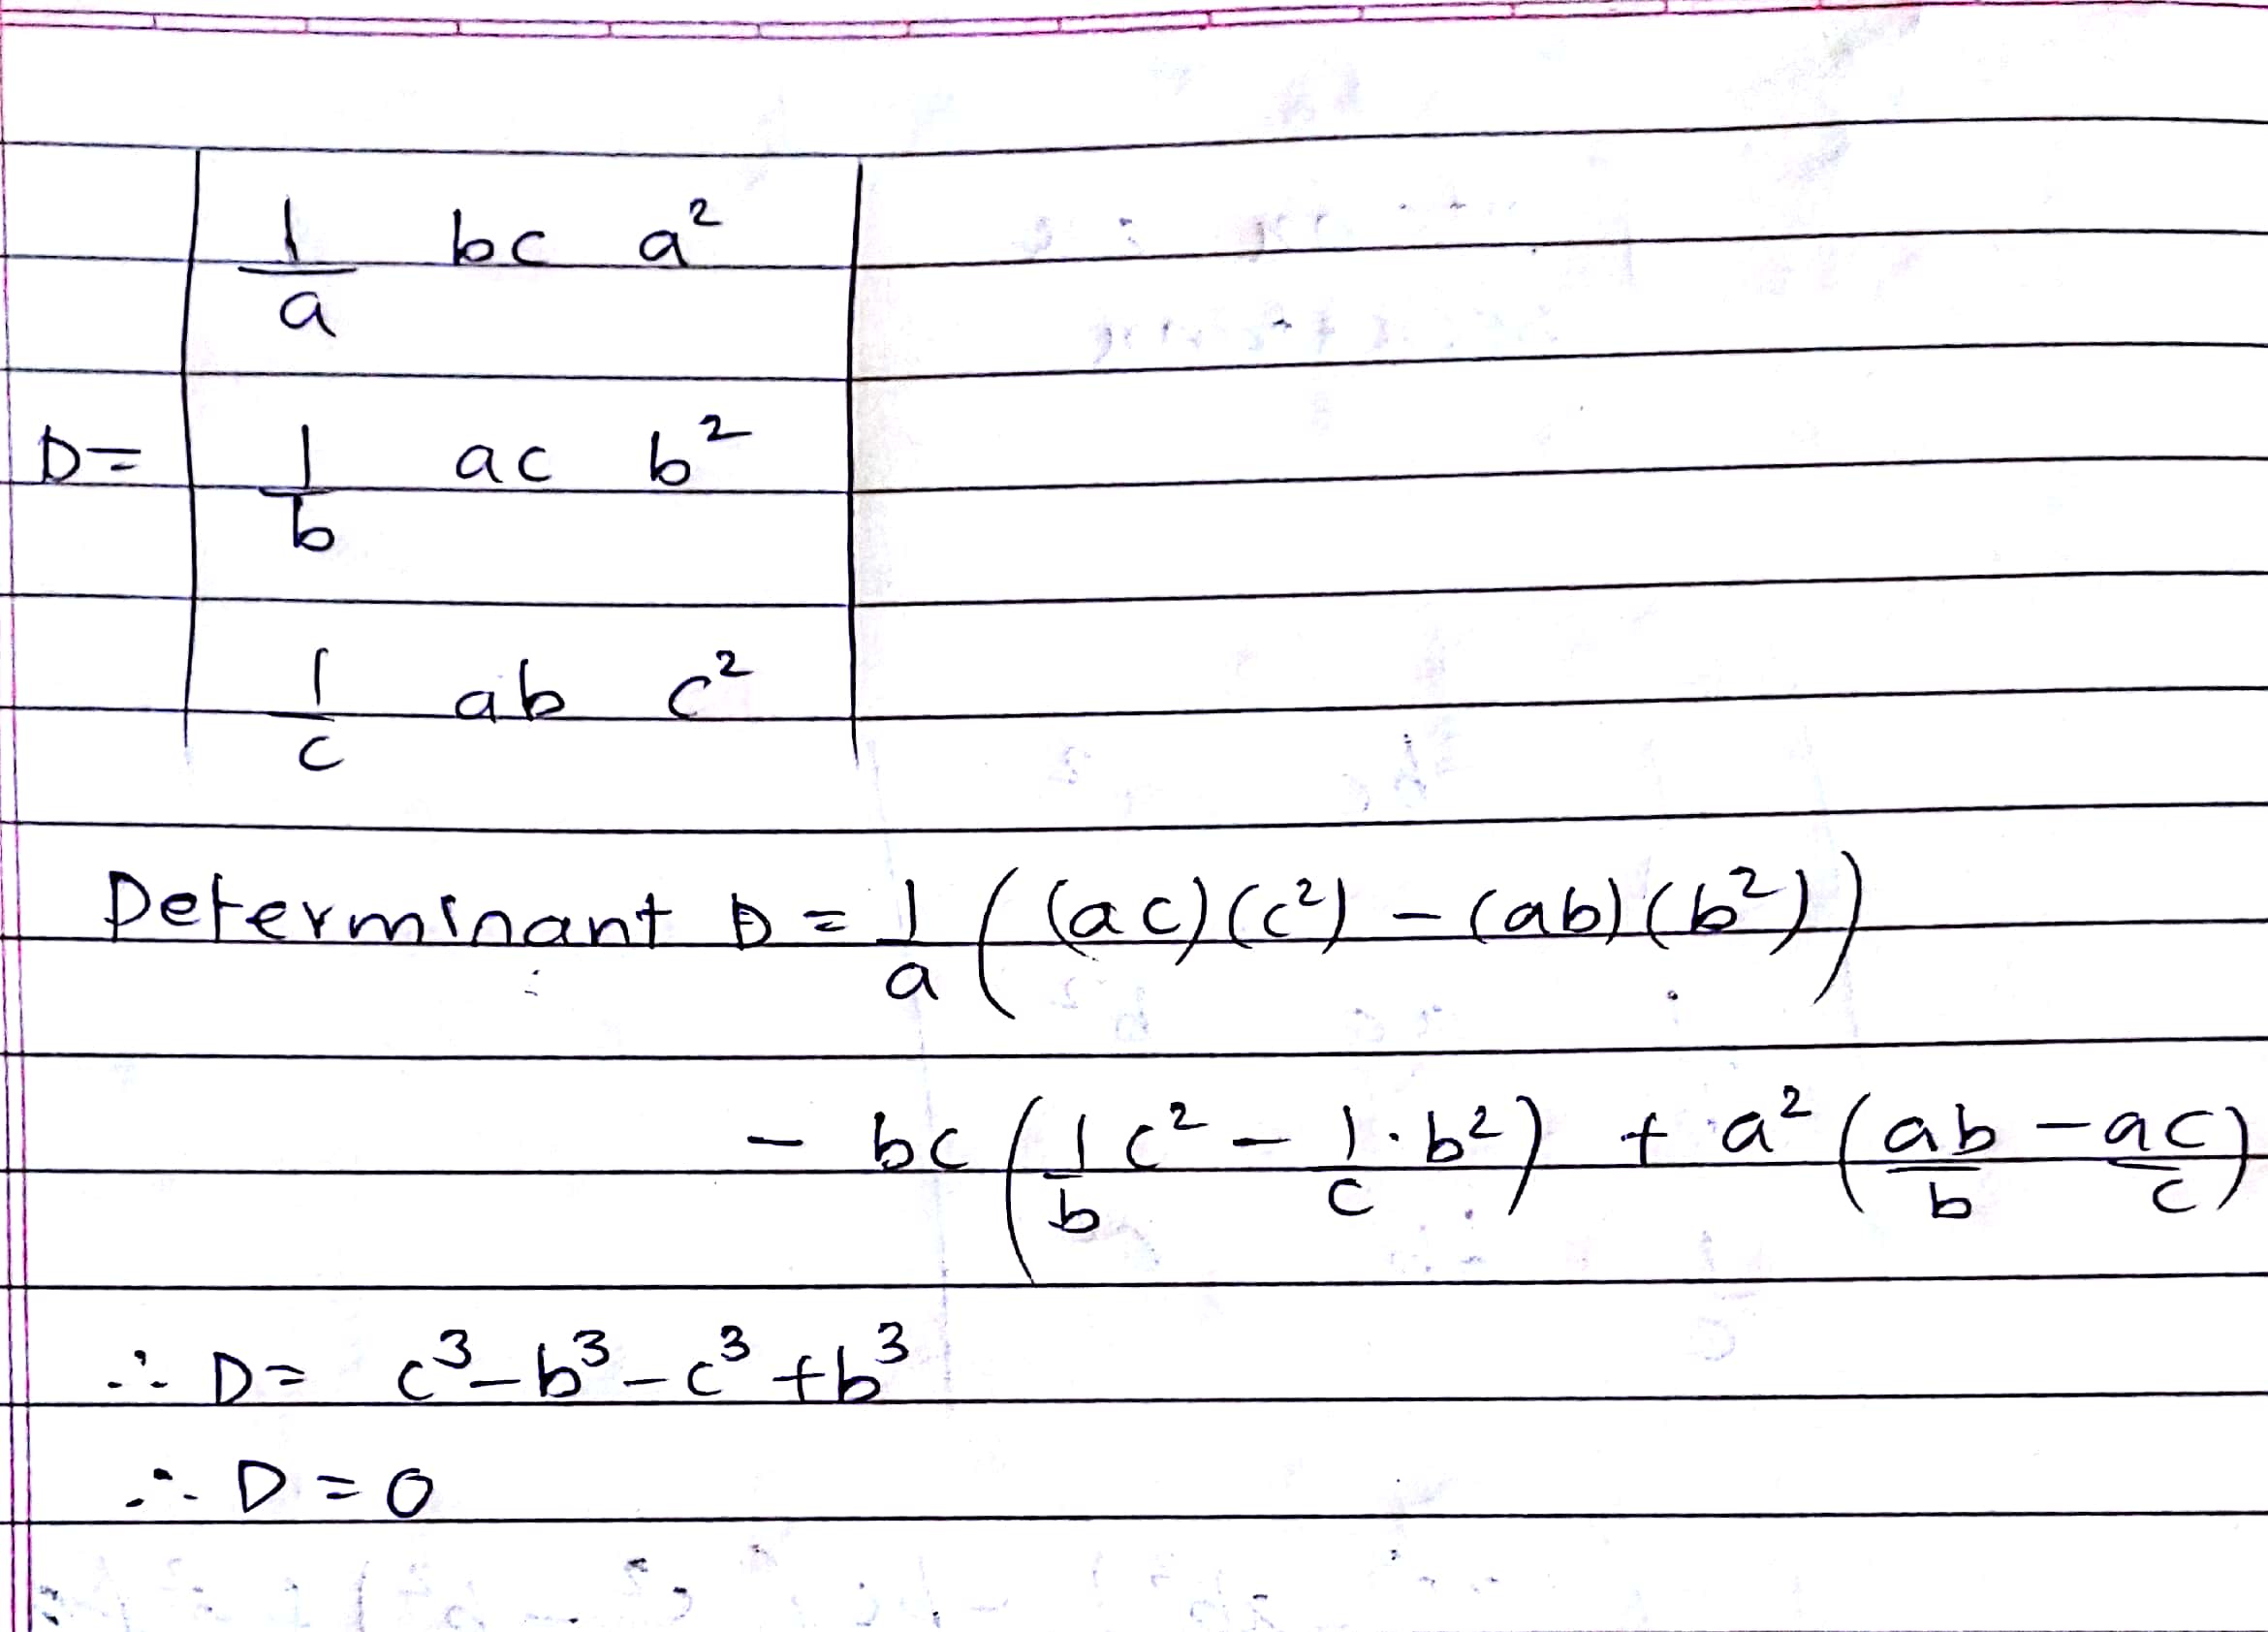 D = | 1/a bc a² |
| 1/b ac b² |
| 1/c ab c² |
Determinant D = 1/a ((ac)(c²) – (ab)(b²))
– bc (1/b c² – 1/c · b²) + a² (ab/b – ac/c)
∴ D = c³ – b³ – c³ + b³
∴ D = 0